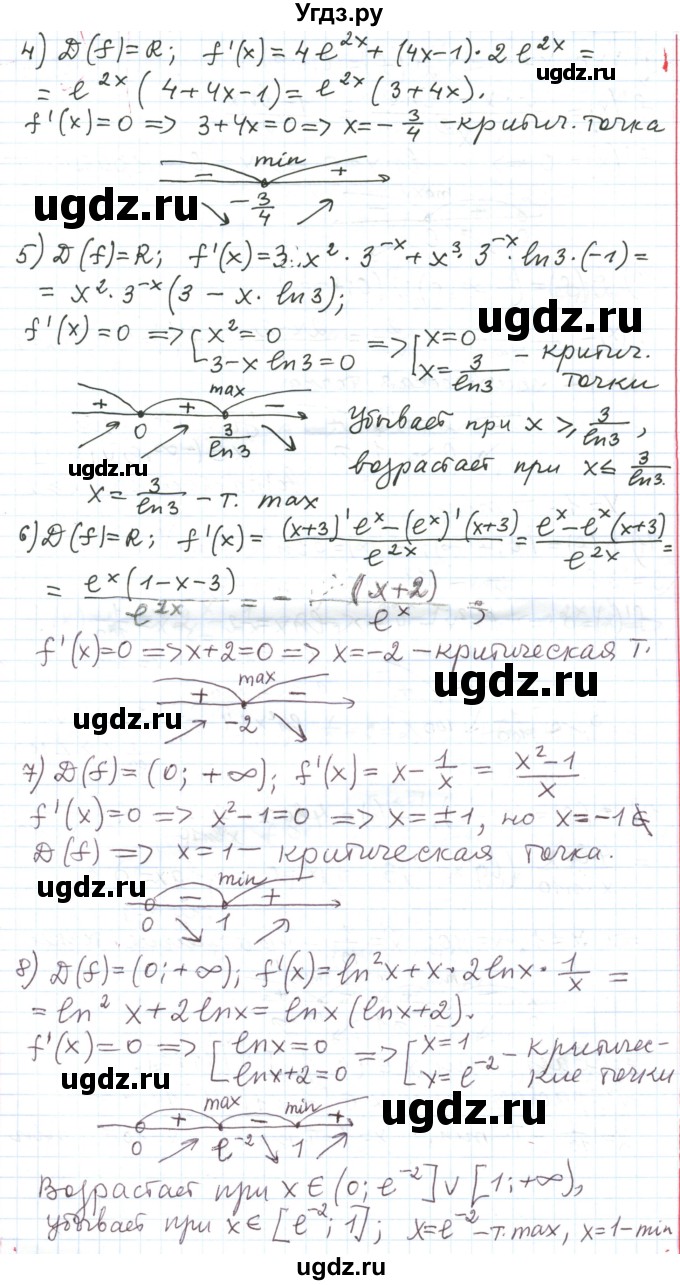 Угдз.ру
4) D(f)=R; f'(x)=4e^{2x}+(4x-1)·2e^{2x}=
=e^{2x}(4+4x-1)=e^{2x}(3+4x).
f'(x)=0 => 3+4x=0 => x=-3/4 -критич. точка
min
- +
ugdz.ru
-3/4
ugdz.ru
5) D(f)=R; f'(x)=3·x²·3^{-x}+x³·3^{-x}·ln3·(-1)=
=x²·3^{-x}(3-x·ln3);
ugdz.ru
f'(x)=0 => [x²=0 => [x=0
3-x ln3=0 x=3/ln3 - критич. точки
max
+ + -
0 3/ln3
Убывает при x ⩾ 3/ln3,
возрастает при x ≤ 3/ln3.
ugdz.ru
x=3/ln3 -т. max
6) D(f)=R; f'(x)=((x+3)'e^x-(e^x)'(x+3))/e^{2x}=(e^x-e^x(x+3))/e^{2x}=
=e^x(1-x-3)/e^{2x}=-(x+2)/e^x;
ugdz.ru
f'(x)=0 => x+2=0 => x=-2 -критическая т.
ugdz.ru
max
+ -
ugdz.ru
-2
7) D(f)=(0;+∞); f'(x)=x-1/x=(x²-1)/x
f'(x)=0 => x²-1=0 => x=±1, но x=-1∉
D(f) => x=1- критическая точка.
ugdz.ru
min
- +
0 1
ugdz.ru
8) D(f)=(0;+∞); f'(x)=ln²x+x·2lnx·1/x=
=ln²x+2lnx=lnx(lnx+2).
f'(x)=0 => [lnx=0 => [x=1
lnx+2=0 x=e^{-2} - критические точки
ugdz.ru
max min
+ - +
ugdz.ru
0 e^{-2} 1
Возрастает при x∈(0;e^{-2}]∨[1;+∞),
убывает при x∈[e^{-2};1]; x=e^{-2}-т.max, x=1-min
ugdz.ru